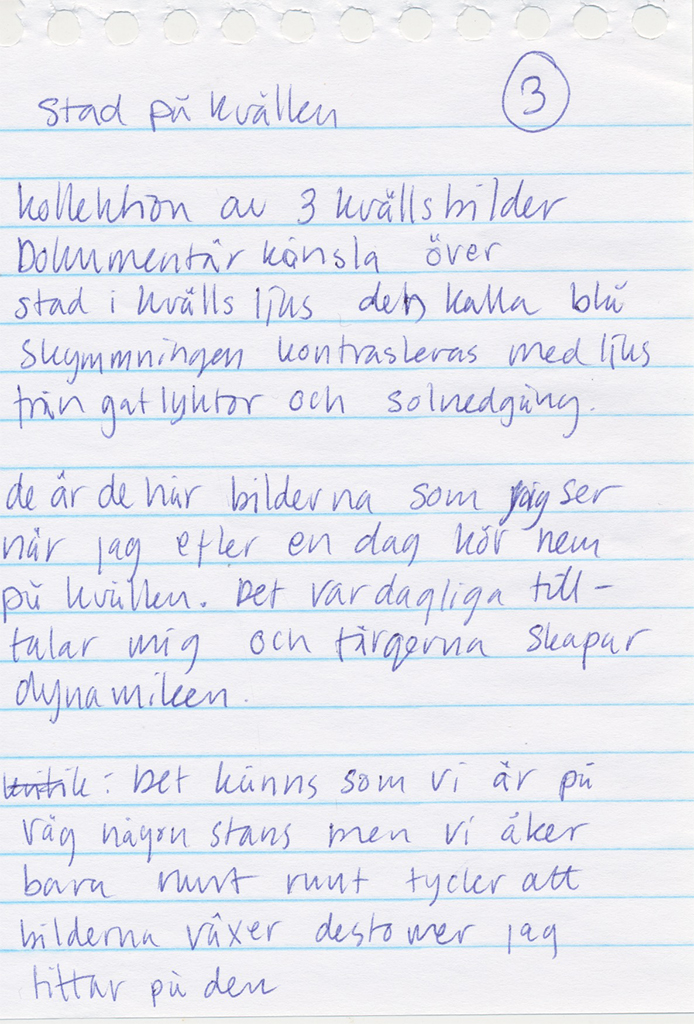 stad på kvällen
3
kollektion av 3 kvällsbilder
Dokumentär känsla över
stad i kvälls ljus den kalla blå
skymmningen kontrasteras med ljus
från gatlyktor och solnedgång.
de är de här bilderna som jag ser
när jag efter en dag kör hem
på kvällen. Det vardagliga till-
talar mig och färgerna skapar
dynamiken.
kritik: Det känns som vi är på
väg någon stans men vi åker
bara runt runt tycker att
bilderna växer desto mer jag
tittar på den